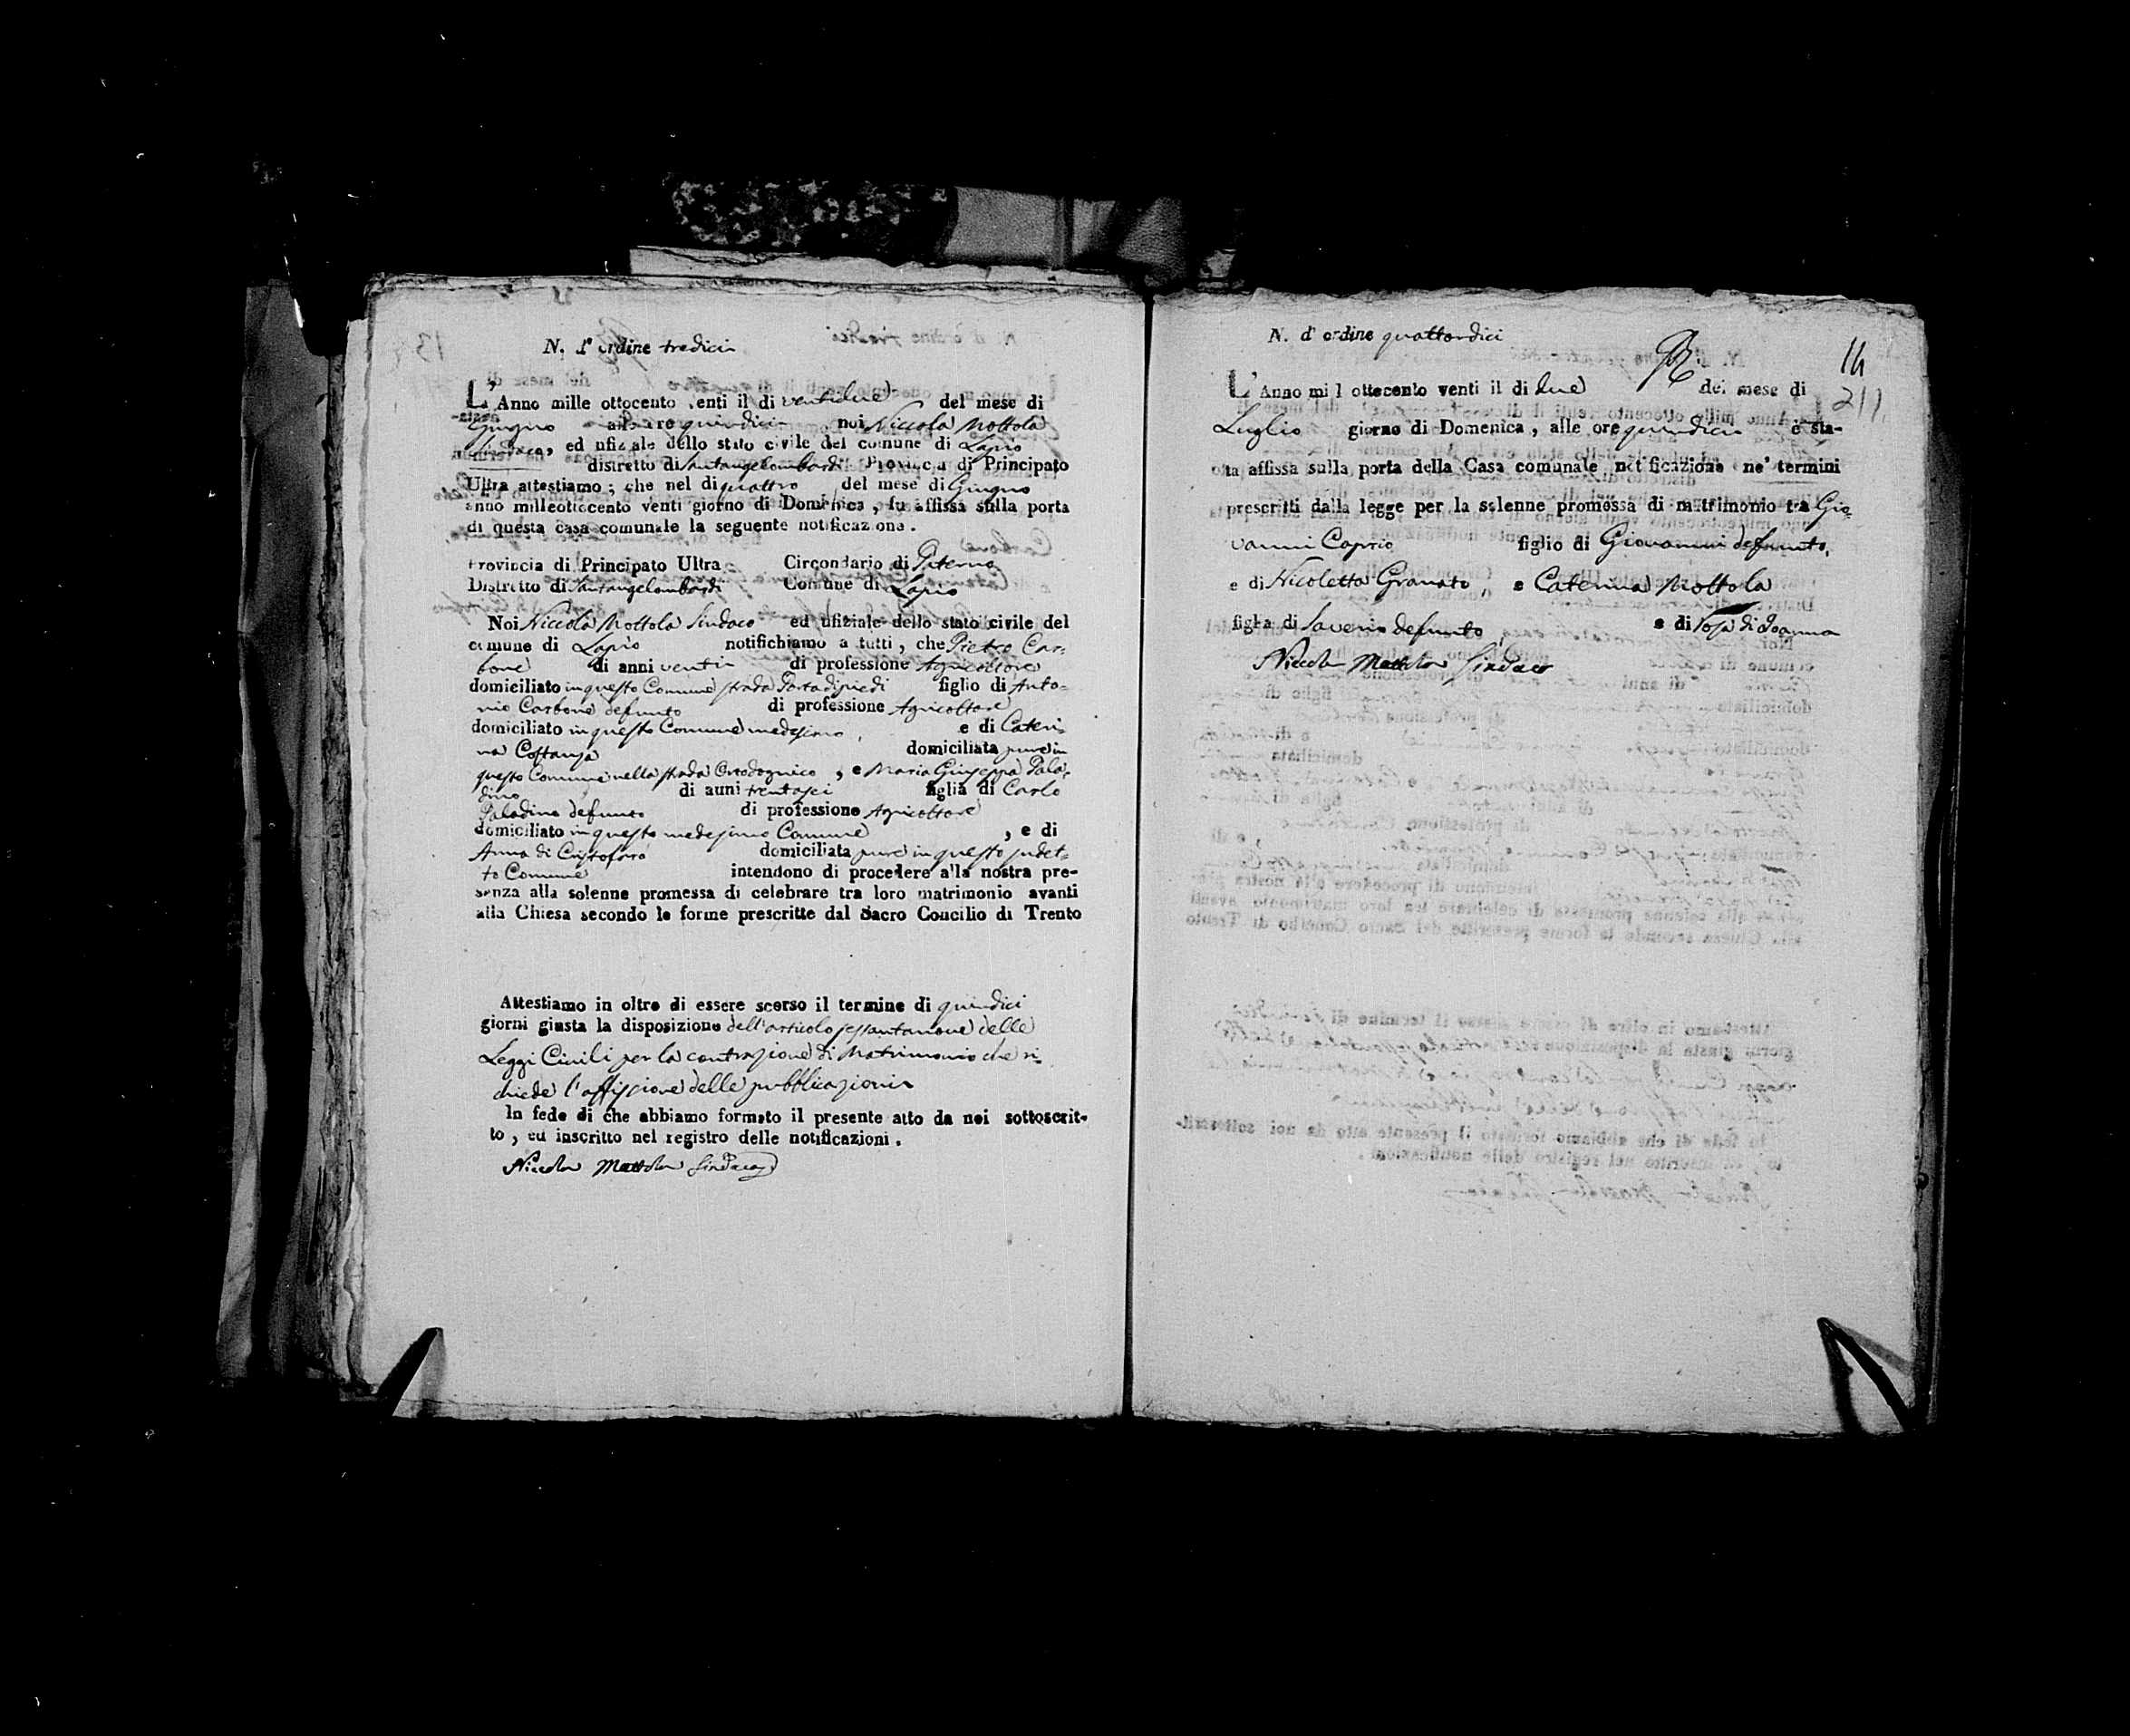 N. d'ordine tredici
L'Anno mille ottocento venti il di ventidue del mese di
Giugno alle ore quindici noi Niccola Mottola
Sindaco, ed ufiziale dello stato civile del comune di Lapio
distretto di Santangelombardi Provincia di Principato
Ultra attestiamo; che nel di quattro del mese di Giugno
anno milleottocento venti giorno di Domenica, fu affissa sulla porta
di questa casa comunale la seguente notificazione.
Provincia di Principato Ultra Circondario di Paterno
Distretto di Santangelombardi Comune di Lapio
Noi Niccola Mottola Sindaco ed ufiziale dello stato civile del
comune di Lapio notifichiamo a tutti, che Pietro Car-
bone di anni venti di professione Agricoltore
domiciliato in questo Comune strada Portadipiedi figlio di Anto-
nio Carbone defunto di professione Agricoltore
domiciliato in questo Comune medesimo, e di Cateri-
na Costanza domiciliata pure in
questo Comune nella strada , e Maria Giuseppa Pala-
dino di anni trentasei figlia di Carlo
Paladino defunto di professione Agricoltore
domiciliato in questo medesimo Comune , e di
Anna di Cristofaro domiciliata pure in questo sudet-
to Comune intendono di procedere alla nostra pre-
senza alla solenne promessa di celebrare tra loro matrimonio avanti
alla Chiesa secondo le forme prescritte dal Sacro Concilio di Trento
Attestiamo in oltre di essere scorso il termine di quindici
giorni giusta la disposizione dell'articolo sessantanove delle
Leggi Civili per la contrazione di Matrimonio che ri-
chiede l'affissione delle pubblicazioni
In fede di che abbiamo formato il presente atto da noi sottoscrit-
to, ed inscritto nel registro delle notificazioni.
Niccola Mottola Sindaco
N. d'ordine quattordici
14
211
L'Anno mil ottocento venti il di due del mese di
Luglio giorno di Domenica, alle ore quindici è sta-
ta affissa sulla porta della Casa comunale notificazione ne' termini
prescritti dalla legge per la solenne promessa di matrimonio tra Gio-
vanni Caprio figlio di Giovanni defunto,
e di Nicoletta Granato, e Caterina Mottola
figlia di Saverio defunto e di Rosa di Joanna
Niccola Mottola Sindaco